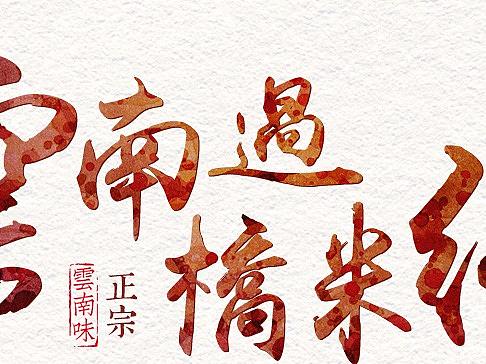 雲南過橋米
正宗
雲南味